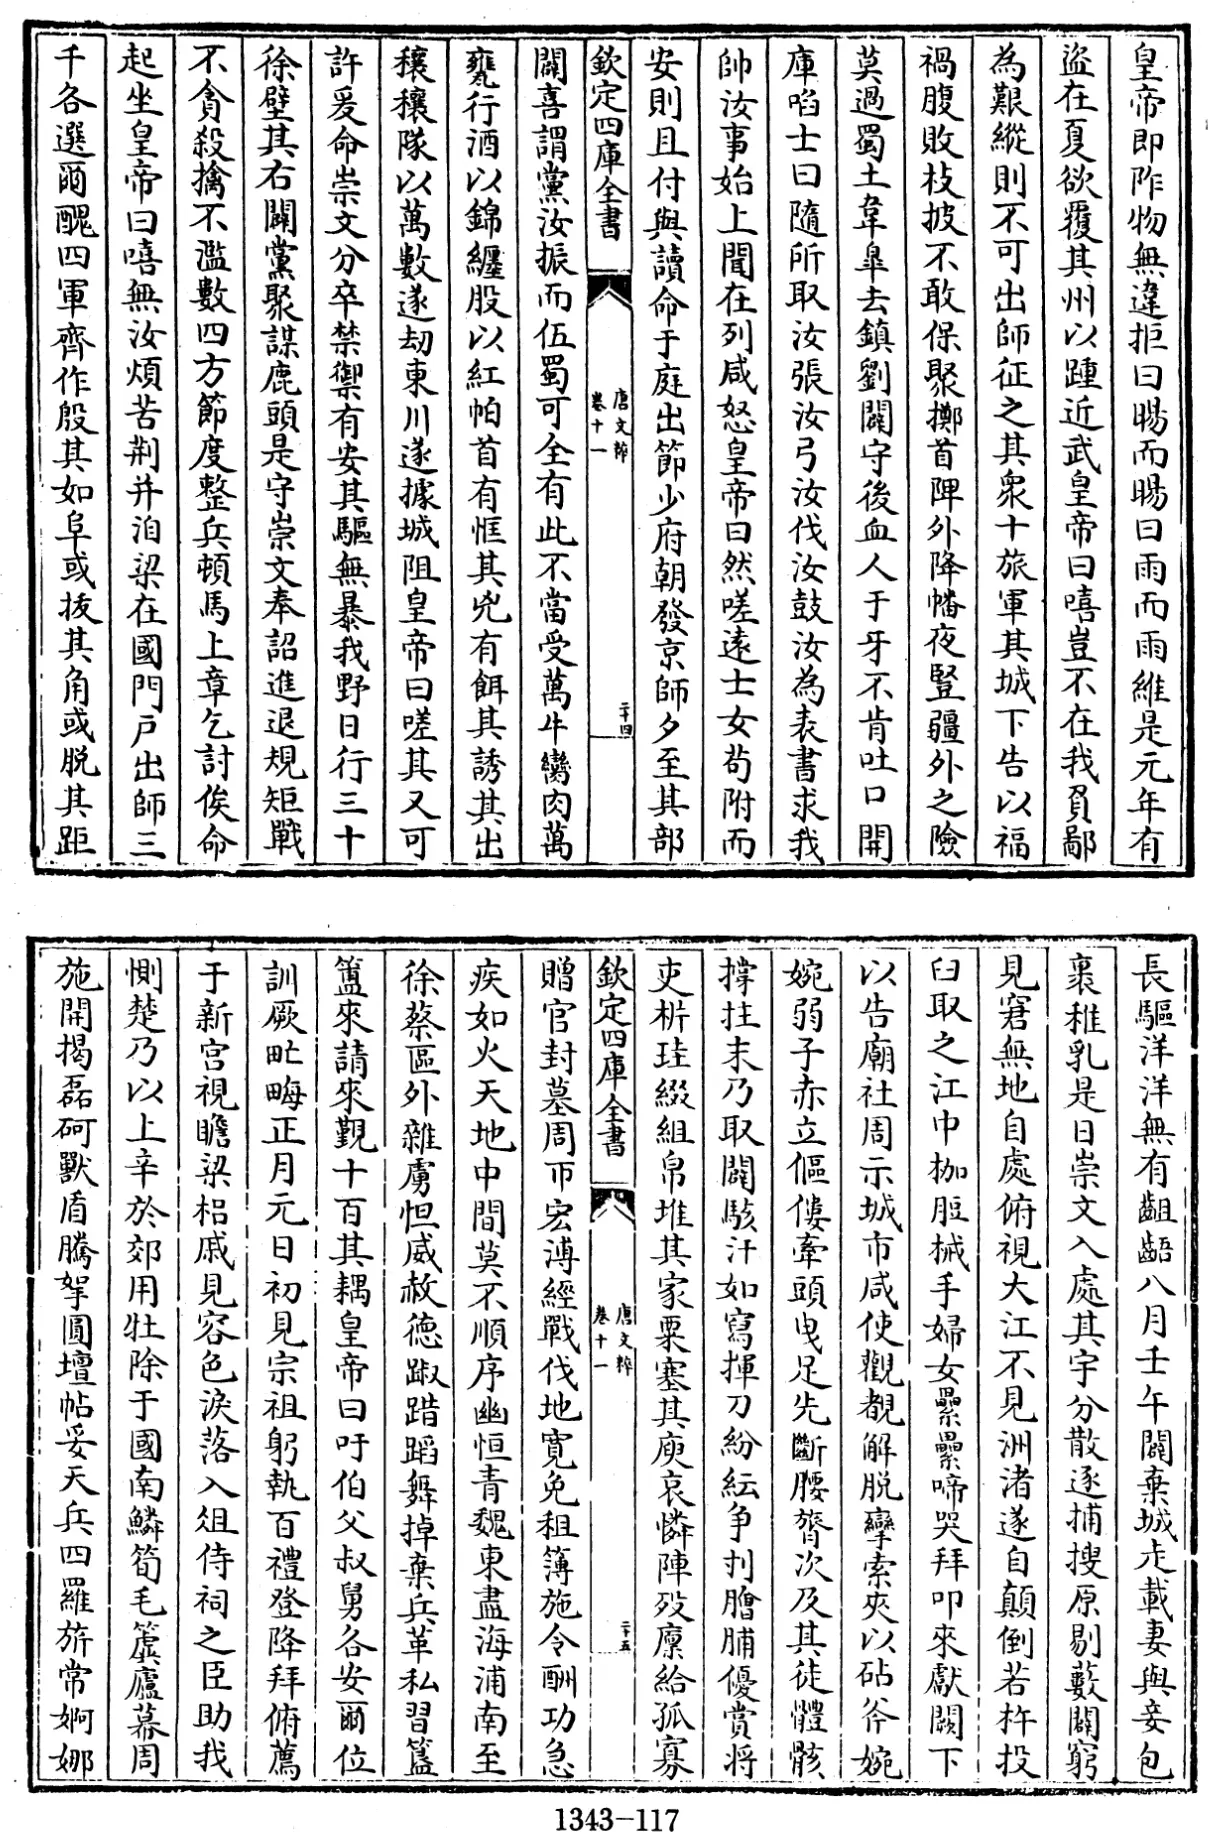 皇帝即阼物無違拒曰暘而暘曰雨而雨維是元年有
盜在夏欲覆其州以踵近武皇帝曰嘻豈不在我負鄙
為艱縱則不可出師征之其衆十旅軍其城下告以福
禍腹敗枝披不敢保聚擲首陴外降幡夜豎疆外之險
莫過蜀土韋臯去鎮劉闢守後血人于牙不肯吐口開
庫啗士曰隨所取汝張汝弓汝伐汝鼓汝為表書求我
帥汝事始上聞在列咸怒皇帝曰然嗟遠士女苟附而
安則且付與讀命于庭出節少府朝發京師夕至其部
欽定四庫全書
唐文粹
卷十一
二十四
闢喜謂黨汝振而伍蜀可全有此不當受萬牛臠肉萬
甕行酒以錦纏股以紅帕首有恇其兇有餌其誘其出
穰穰隊以萬數遂刼東川遂據城阻皇帝曰嗟其又可
許爰命崇文分卒禁禦有安其驅無暴我野日行三十
徐壁其右闢黨聚謀鹿頭是守崇文奉詔進退規矩戰
不貪殺擒不濫數四方節度整兵頓馬上章乞討俟命
起坐皇帝曰嘻無汝煩苦荆并洎梁在國門戶出師三
千各選爾醜四軍齊作殷其如阜或拔其角或脫其距
長驅洋洋無有齟齬八月壬午闢棄城走載妻與妾包
裹稚乳是日崇文入處其宇分散逐捕搜原剔藪闢窮
見窘無地自處俯視大江不見洲渚遂自顛倒若杵投
臼取之江中枷脰械手婦女纍纍啼哭拜叩來獻闕下
以告廟社周示城市咸使觀覩解脫攣索夾以砧斧婉
婉弱子赤立傴僂牽頭曳足先斷腰膂次及其徒體骸
撐拄末乃取闢駭汗如寫揮刀紛紜争刌膾脯優賞將
吏析珪綴組帛堆其家粟塞其庾哀憐陣歿廩給孤寡
欽定四庫全書
唐文粹
卷十一
二十五
贈官封墓周帀宏溥經戰伐地寬免租簿施令酬功急
疾如火天地中間莫不順序幽恒青魏東盡海浦南至
徐蔡區外雜虜怛威赦德踧踖蹈舞掉棄兵革私習簋
簠來請來覲十百其耦皇帝曰吁伯父叔舅各安爾位
訓厥甿畮正月元日初見宗祖躬執百禮登降拜俯薦
于新宫視瞻梁梠戚見容色淚落入俎侍祠之臣助我
惻楚乃以上辛於郊用牡除于國南鱗筍毛簴廬幕周
施開揭磊砢獸盾騰拏圓壇帖妥天兵四羅旂常婀娜
1343-117